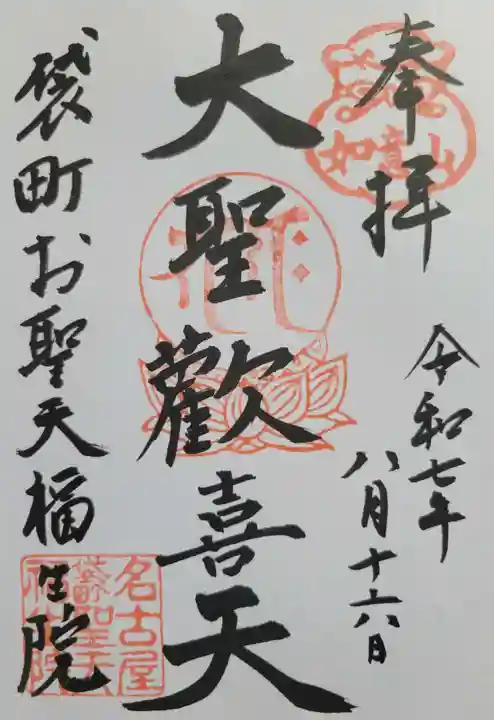 奉拝
如意山
令和七年
八月十六日
大聖歓喜天
袋町お聖天福生院
名古屋